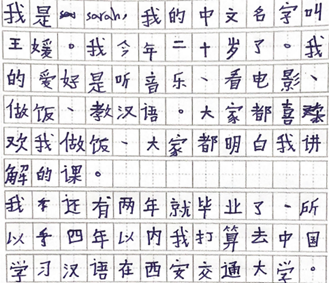 我是sarah,我的中文名字叫
王媛。我今年二十岁了。我
的爱好是听音乐、看电影、
做饭、教汉语。大家都喜
欢我做饭、大家都明白我讲
解的课。
我还有两年就毕业了、所
以四年以内我打算去中国
学习汉语在西安交通大学。